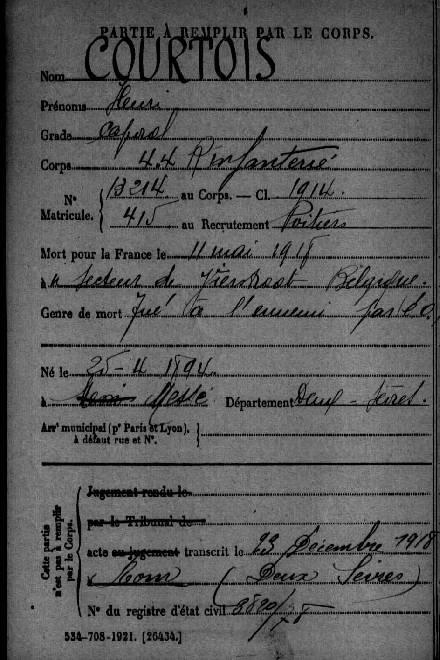 PARTIE À REMPLIR PAR LE CORPS.
Nom COURTOIS
Prénoms Henri
Grade Caporal
Corps 44 R Infanterie
N° Matricule. { 13214 au Corps. — Cl. 1914.
415 au Recrutement Poitiers
Mort pour la France le 11 mai 1918
à secteur de Vierstraat Belgique.
Genre de mort Tué à l'ennemi par é.o.
Né le 25-4 1894
à Messé Département Deux-Sèvres.
Arrt municipal (pr Paris et Lyon),
à défaut rue et N°.
Cette partie n'est pas à remplir par le Corps.
Jugement rendu le
par le Tribunal de
acte ou jugement transcrit le 23 Décembre 1918
à Rom (Deux Sèvres)
N° du registre d'état civil
534-708-1921. [26434.]